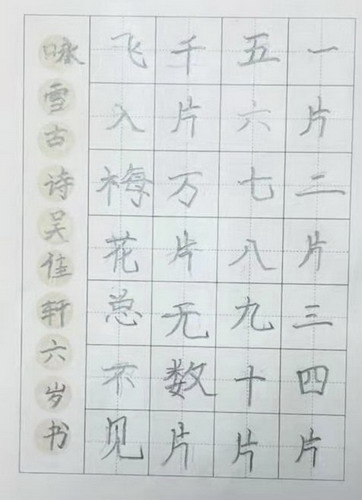 一片二片三四片
五六七八九十片
千片万片无数片
飞入梅花总不见
咏雪古诗吴佳轩六岁书